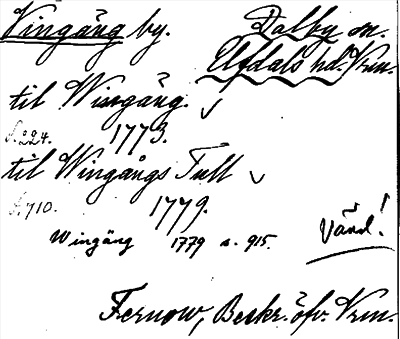 Vingäng by. Dalby sn.
Elfdals hd. Vrm.
til Wingäng.
s. 224. 1773.
til Wingångs Tull
s. 710. 1779.
Wingäng 1779 s. 915.
Vänd!
Fernow, Beskr. öfv. Vrm.